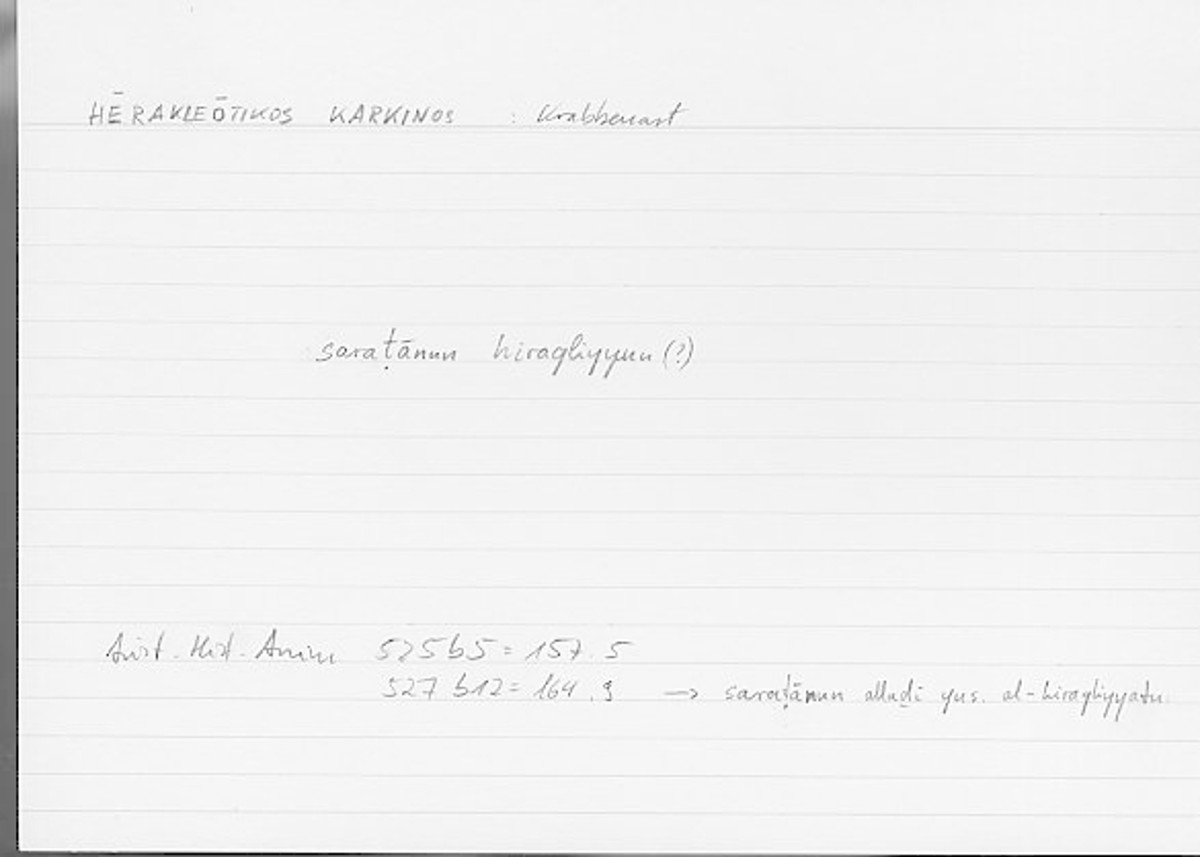 HĒRAKLEŌTIKOS KARKINOS : Krabbenart
saraṭānun hiraqliyyun (?)
Arist. Hist. Anim 525b5 = 157.5
527b12 = 164.9 → saraṭānun allaḏī yus. al-hiraqliyyatu